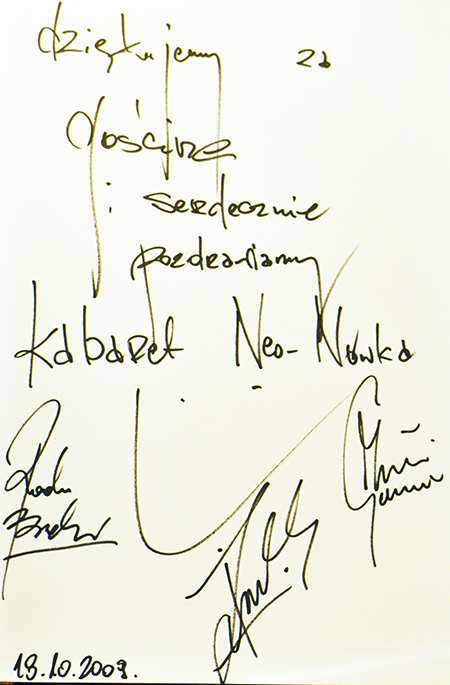 dziękujemy za
gościnę
i serdecznie
pozdrawiamy
Kabaret Neo-Nówka
Radu
18.10.2009.